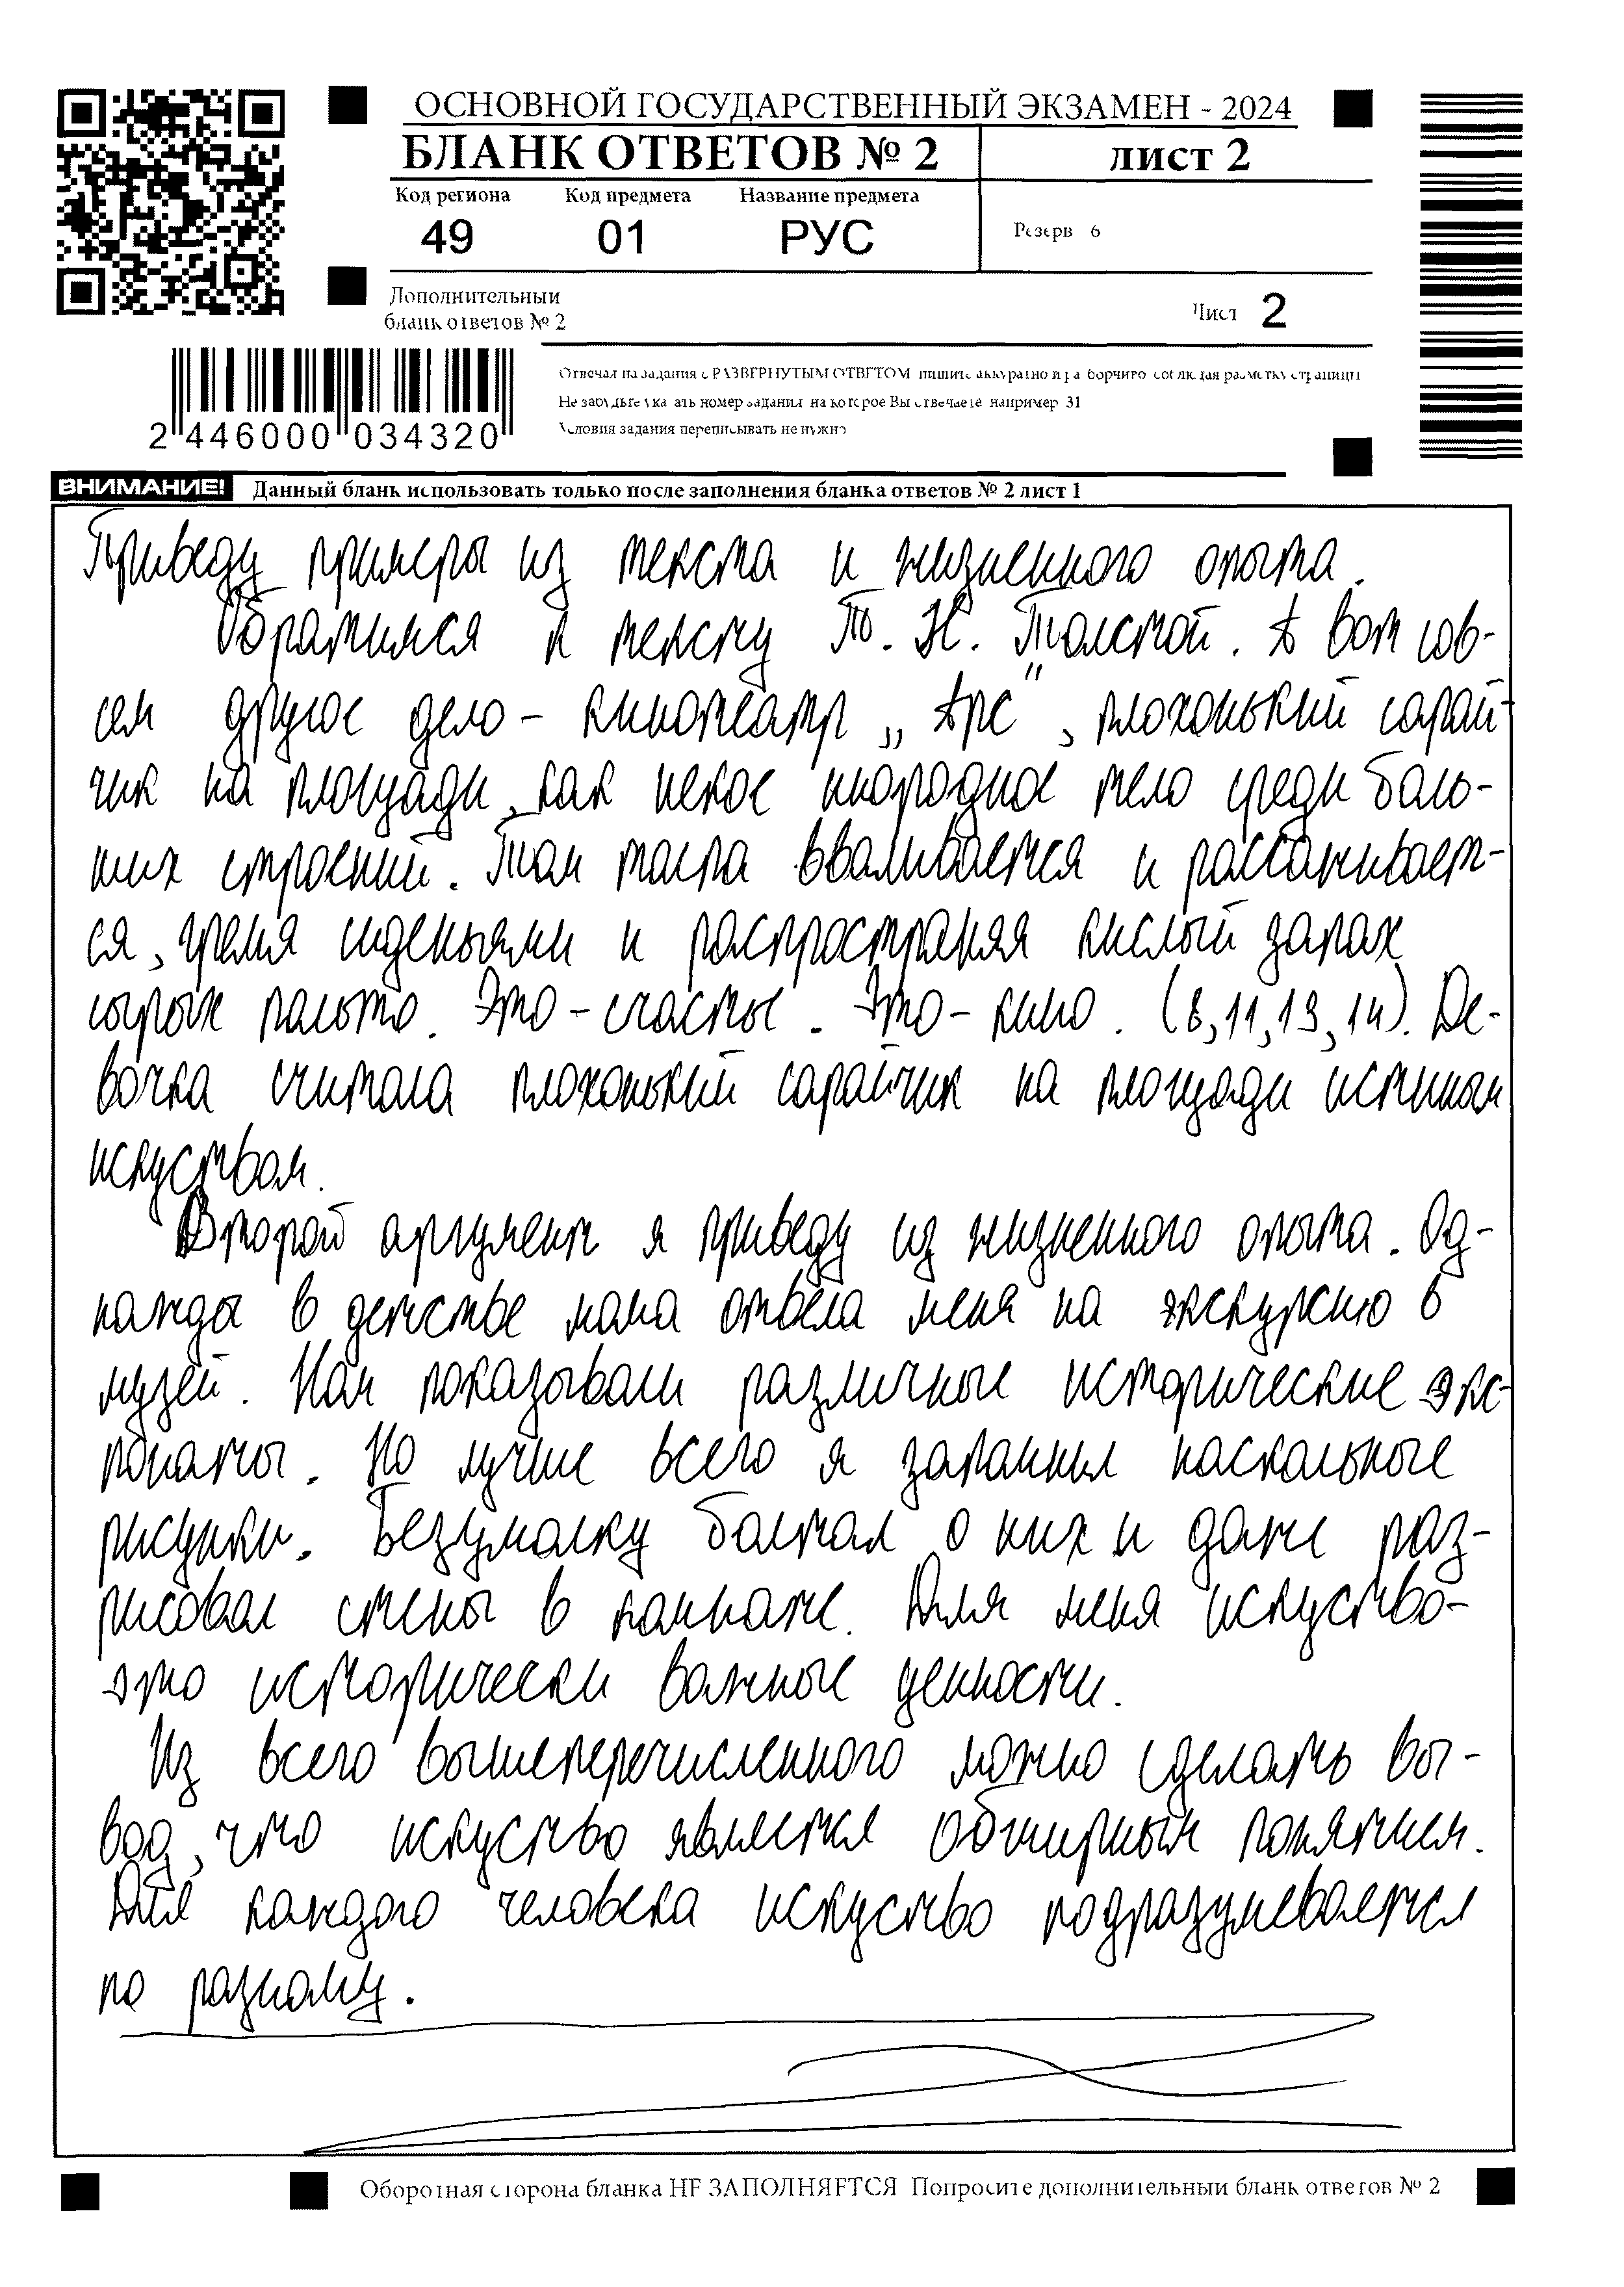 ОСНОВНОЙ ГОСУДАРСТВЕННЫЙ ЭКЗАМЕН - 2024
БЛАНК ОТВЕТОВ № 2
лист 2
Код региона
Код предмета
Название предмета
49
01
РУС
Резерв 6
Дополнительный
бланк ответов № 2
Лист 2
2 446000 034320
Отвечая на задания с РАЗВЕРНУТЫМ ОТВЕТОМ пишите аккуратно и разборчиво соблюдая разметку страницы
Не забудьте указать номер задания на которое Вы отвечаете например 31
Условия задания переписывать не нужно
ВНИМАНИЕ! Данный бланк использовать только после заполнения бланка ответов № 2 лист 1
Приведу примеры из текста и жизненного опыта.
Обратимся к тексту Т. Н. Толстой. А вот сов-
сем другое дело – кинотеатр „Арс", плохонький сарай-
чик на площади, как некое инородное тело среди боль-
ших строений. Там толпа вваливается и рассаживает-
ся, гремя сиденьями и распространяя кислый запах
сырых пальто. Это – счастье. Это – кино. (6,11,13,14). Де-
вочка считала плохонький сарайчик на площади истиным
искуством.
Второй аргумент я приведу из жизненного опыта. Од-
нажды в детстве мама отвела меня на экскурсию в
музей. Нам показывали различные исторические экс-
понаты. Но лучше всего я запомнил наскальные
рисунки. Безумолку болтал о них и даже раз-
рисовал стены в комнате. Для меня искуство-
это исторически важные ценности.
Из всего вышеперечисленного можно сделать вы-
вод, что искуство является обширным понятием.
Для каждого человека искуство подразумевается
по разному.
Оборотная сторона бланка НЕ ЗАПОЛНЯЕТСЯ Попросите дополнительный бланк ответов № 2